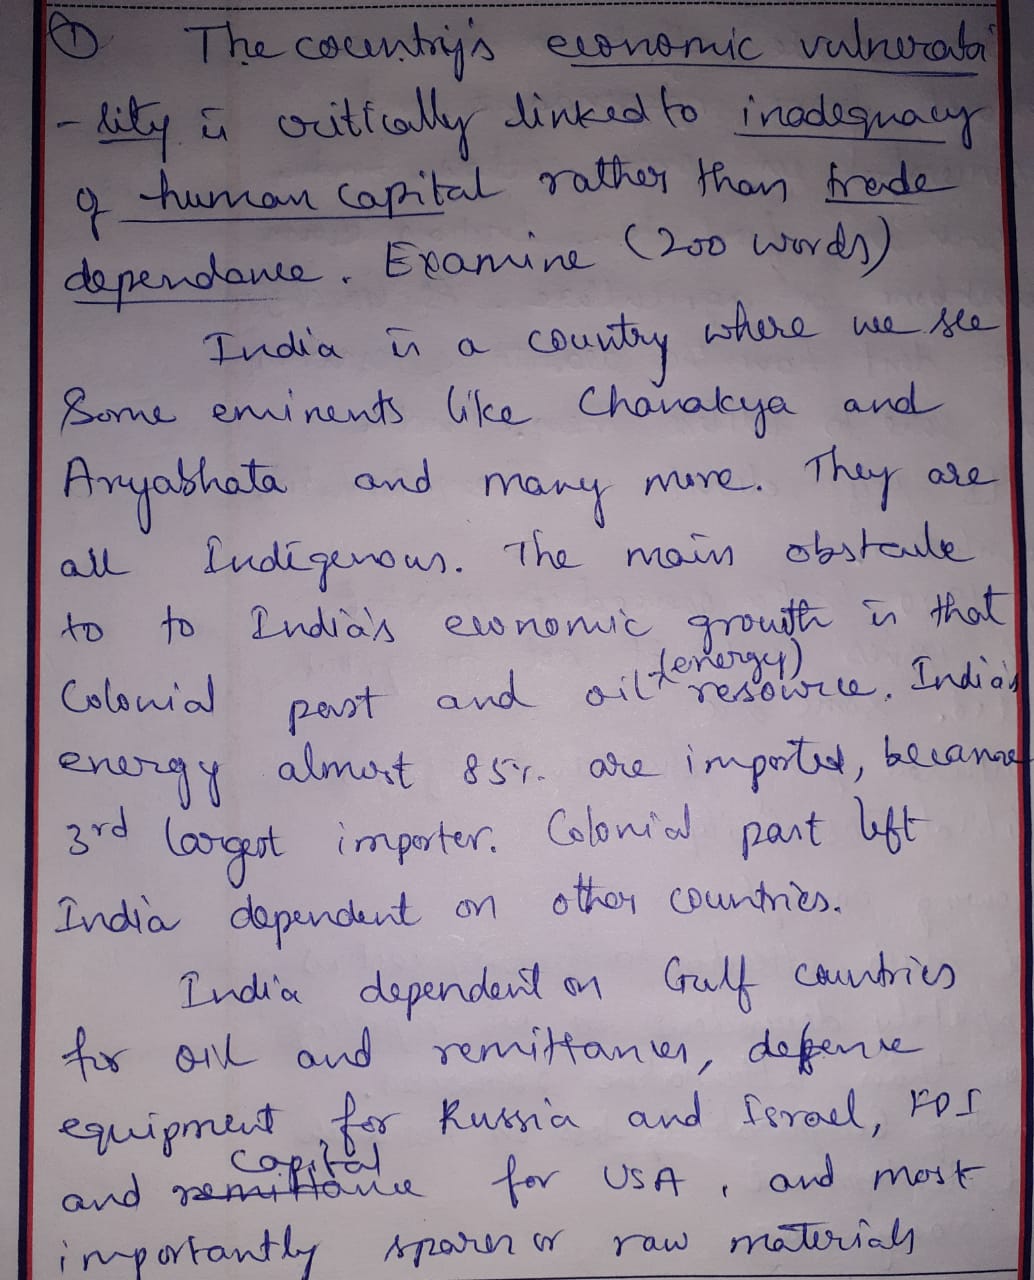 ① The country's economic vulnerabi
- lity is critically linked to inadequacy
of human capital rather than trade
dependance. Examine (200 words)
India is a country where we see
Some eminents like Chanakya and
Aryabhata and many more. They are
all Indigenous. The main obstacle
to to India's economic growth is that
Colonial past and oil (energy) resource. India's
energy almost 85%. are imported, because
3rd largest importer. Colonial past left
India dependent on other countries.
India dependent on Gulf countries
for oil and remittances, defense
equipment for Russia and Israel, FDI
and remittance capital for USA, and most
importantly spares or raw materials